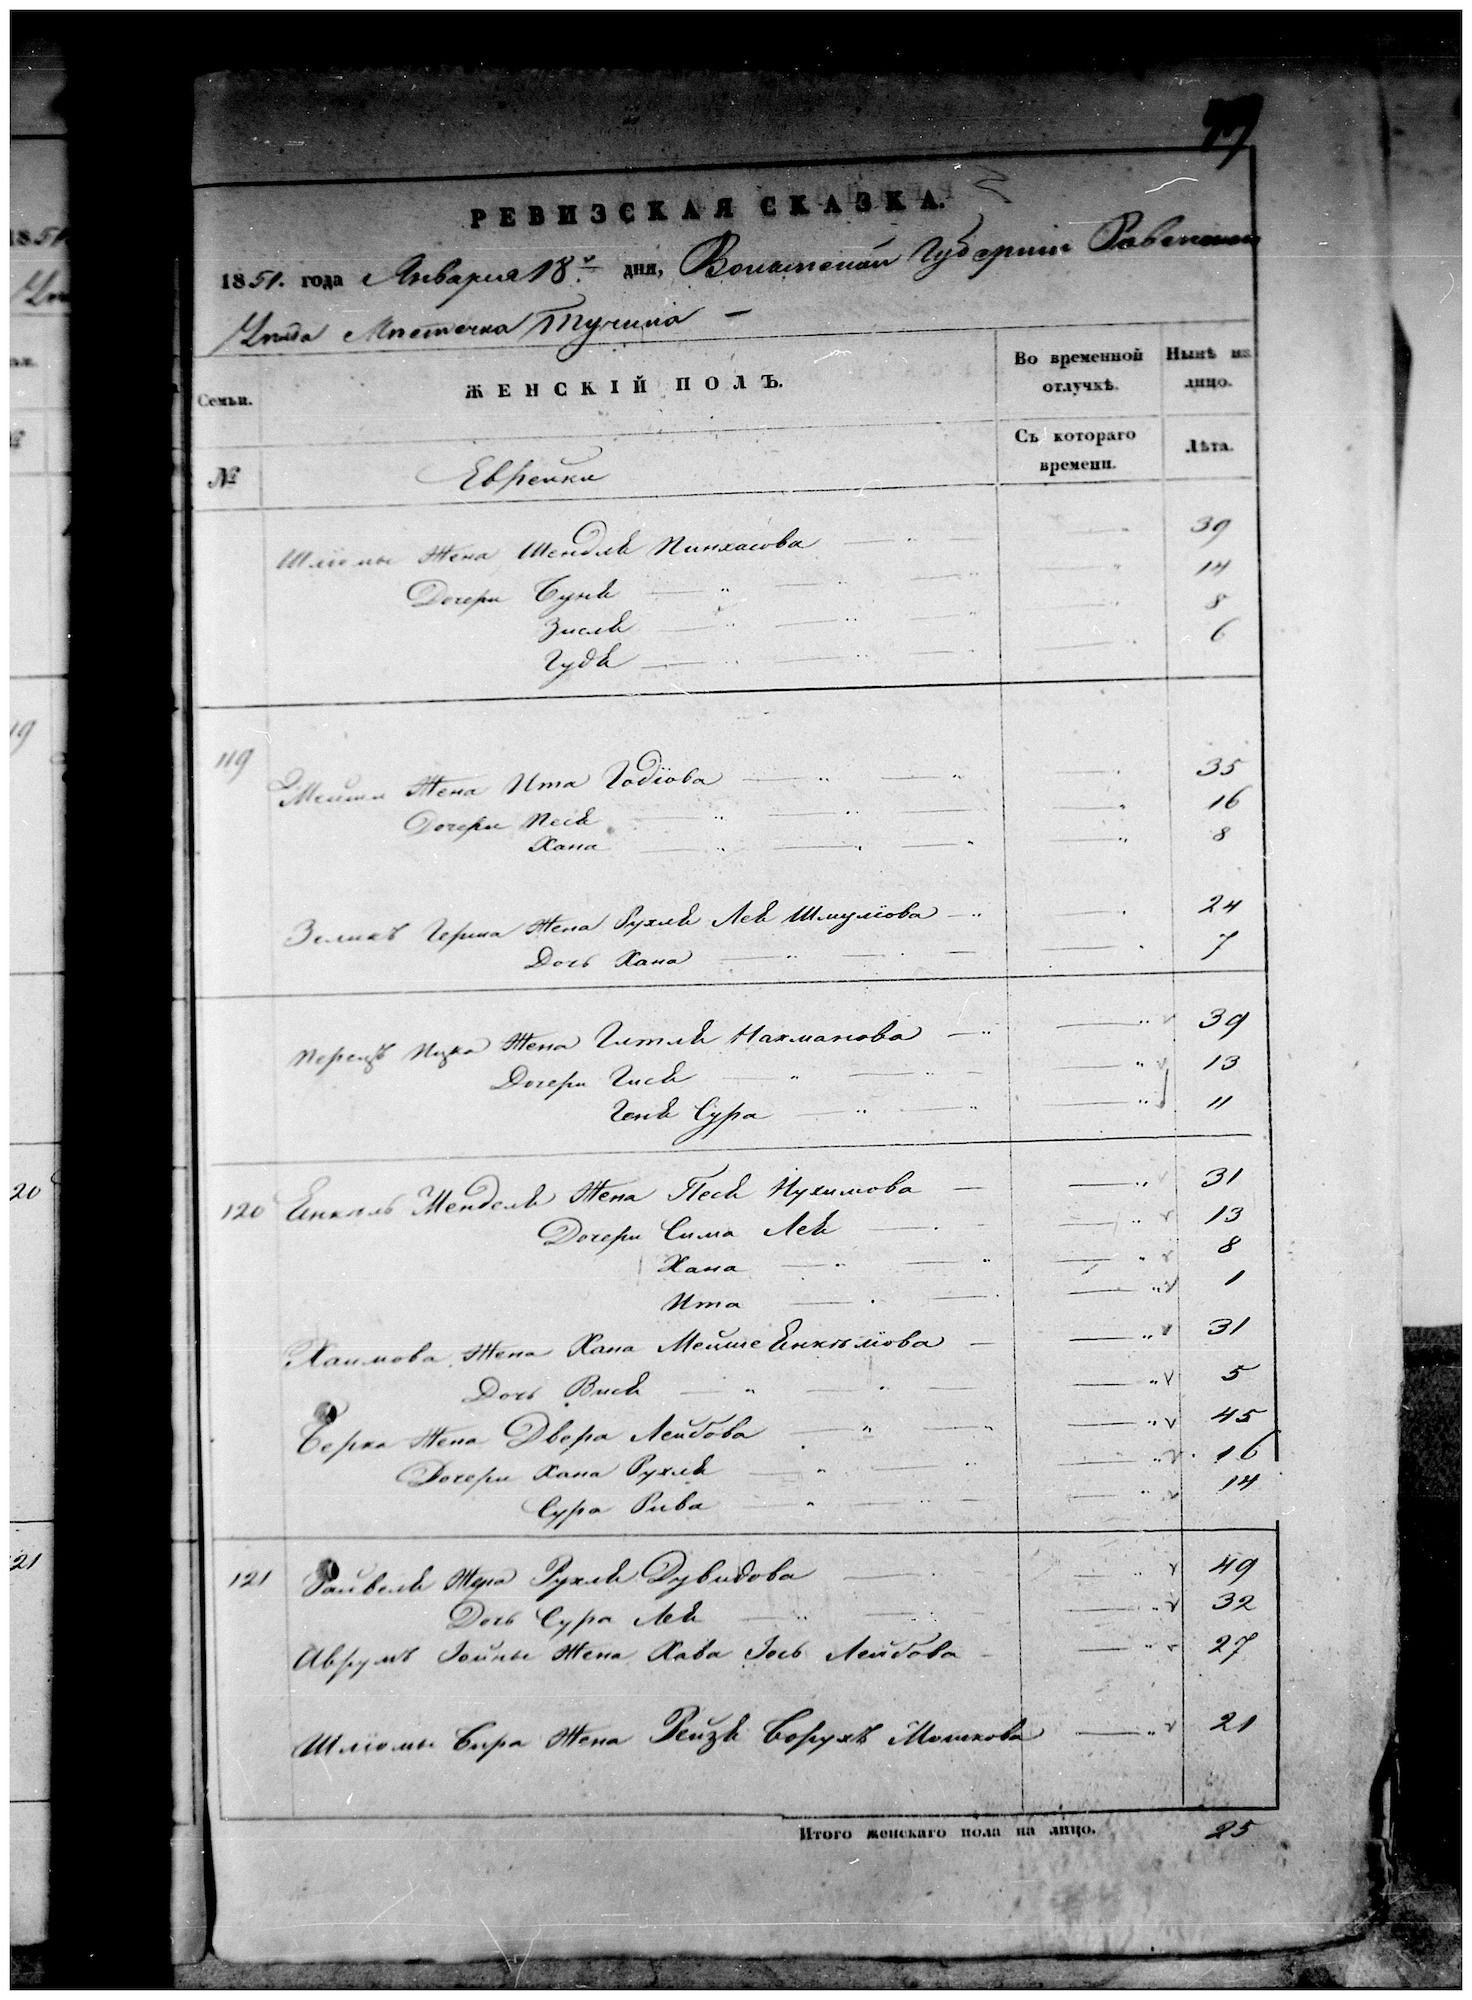 77
РЕВИЗСКАЯ СКАЗКА.
1851. года Января 18 дня, Волынской Губернии Ровенскаго
Уезда Местечка Тучина —
Семьи.
ЖЕНСКІЙ ПОЛЪ.
Во временной отлучкѣ.
Нынѣ на лицо.
№
Еврейки
Съ котораго времени.
Лѣта.
Шліомы Жена Шендлѣ Пинхасова 39
Дочери Бунѣ 14
Зислѣ 8
Гудѣ 6
119
Мейши Жена Ита Годіова 35
Дочери Песѣ 16
Хана 8
Зеликъ Герша Жена Рухлѣ Леѣ Шмуліова 24
Дочь Хана 7
Перецъ Ицка Жена Гитлѣ Нахманова 39
Дочери Гисѣ 13
Генѣ Сура 11
120 Енкель Менделѣ Жена Песѣ Нухимова 31
Дочери Сима Леѣ 13
Хана 8
Ита 1
Хаимова Жена Хана Мейше Енкеліова 31
Дочь Висѣ 5
Берка Жена Двера Лейбова 45
Дочери Хана Рухлѣ 16
Сура Рива 14
121 Файвелѣ Жена Рухлѣ Дувидова 49
Дочь Сура Леѣ 32
Аврумъ Іойны Жена Хава Іось Лейбова 27
Шліомы Бера Жена Рейзѣ Борухъ Мошкова 21
Итого женскаго пола на лицо. 25